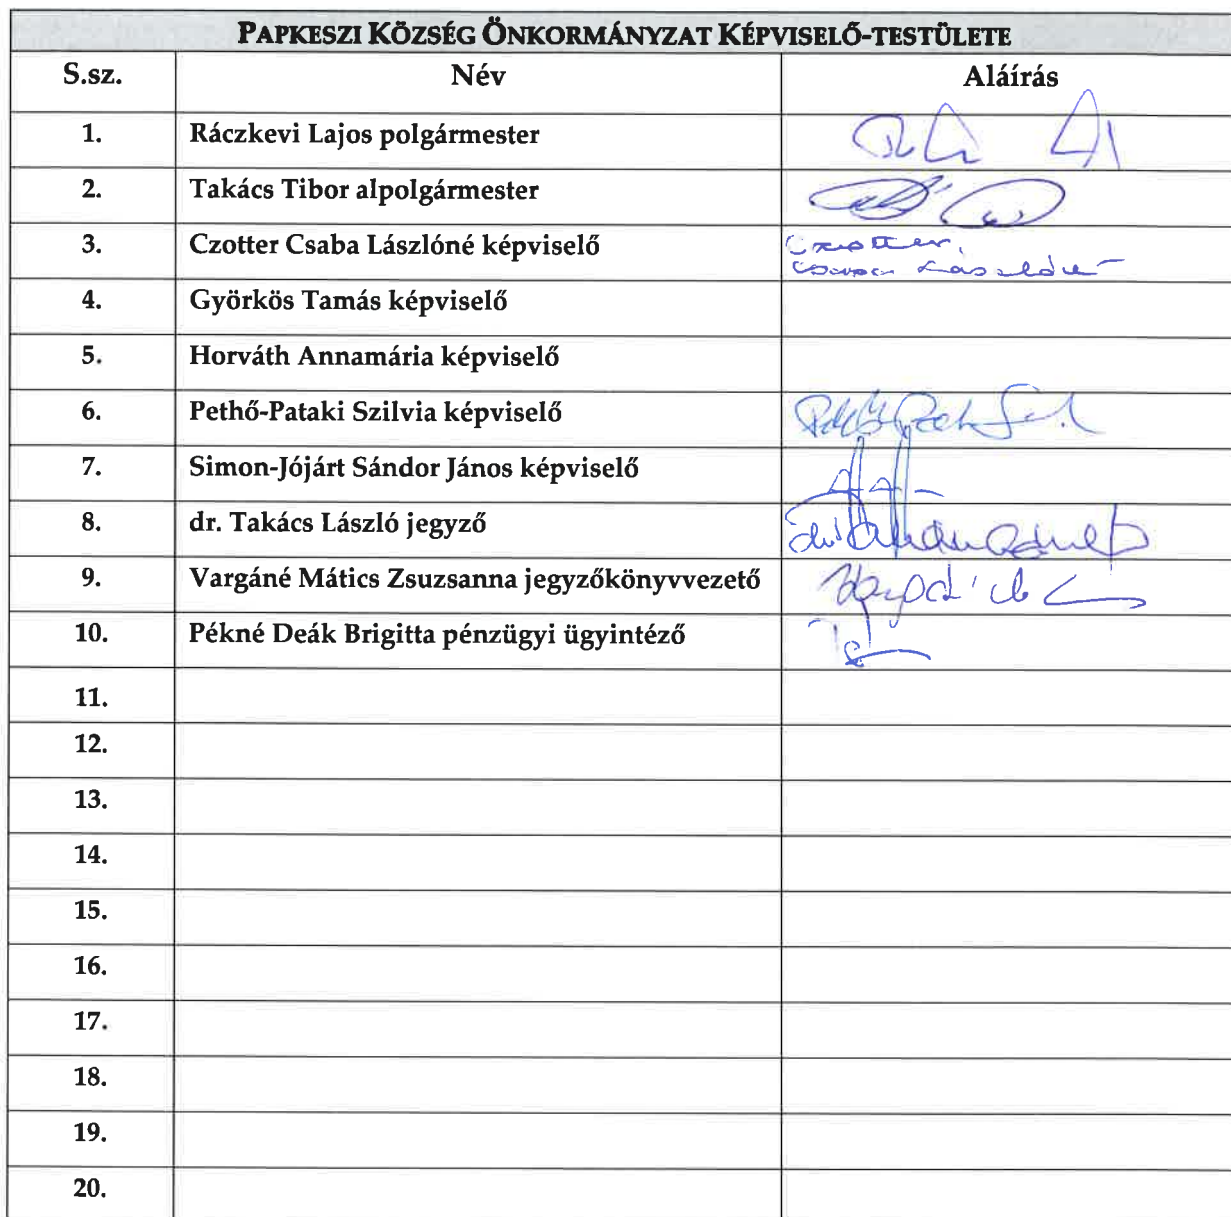 PAPKESZI KÖZSÉG ÖNKORMÁNYZAT KÉPVISELŐ-TESTÜLETE
S.sz. Név Aláírás
1. Ráczkevi Lajos polgármester
2. Takács Tibor alpolgármester
3. Czotter Csaba Lászlóné képviselő Czotter
Csaba Lászlóné
4. Györkös Tamás képviselő
5. Horváth Annamária képviselő
6. Pethő-Pataki Szilvia képviselő
7. Simon-Jójárt Sándor János képviselő
8. dr. Takács László jegyző
9. Vargáné Mátics Zsuzsanna jegyzőkönyvvezető
10. Pékné Deák Brigitta pénzügyi ügyintéző
11.
12.
13.
14.
15.
16.
17.
18.
19.
20.